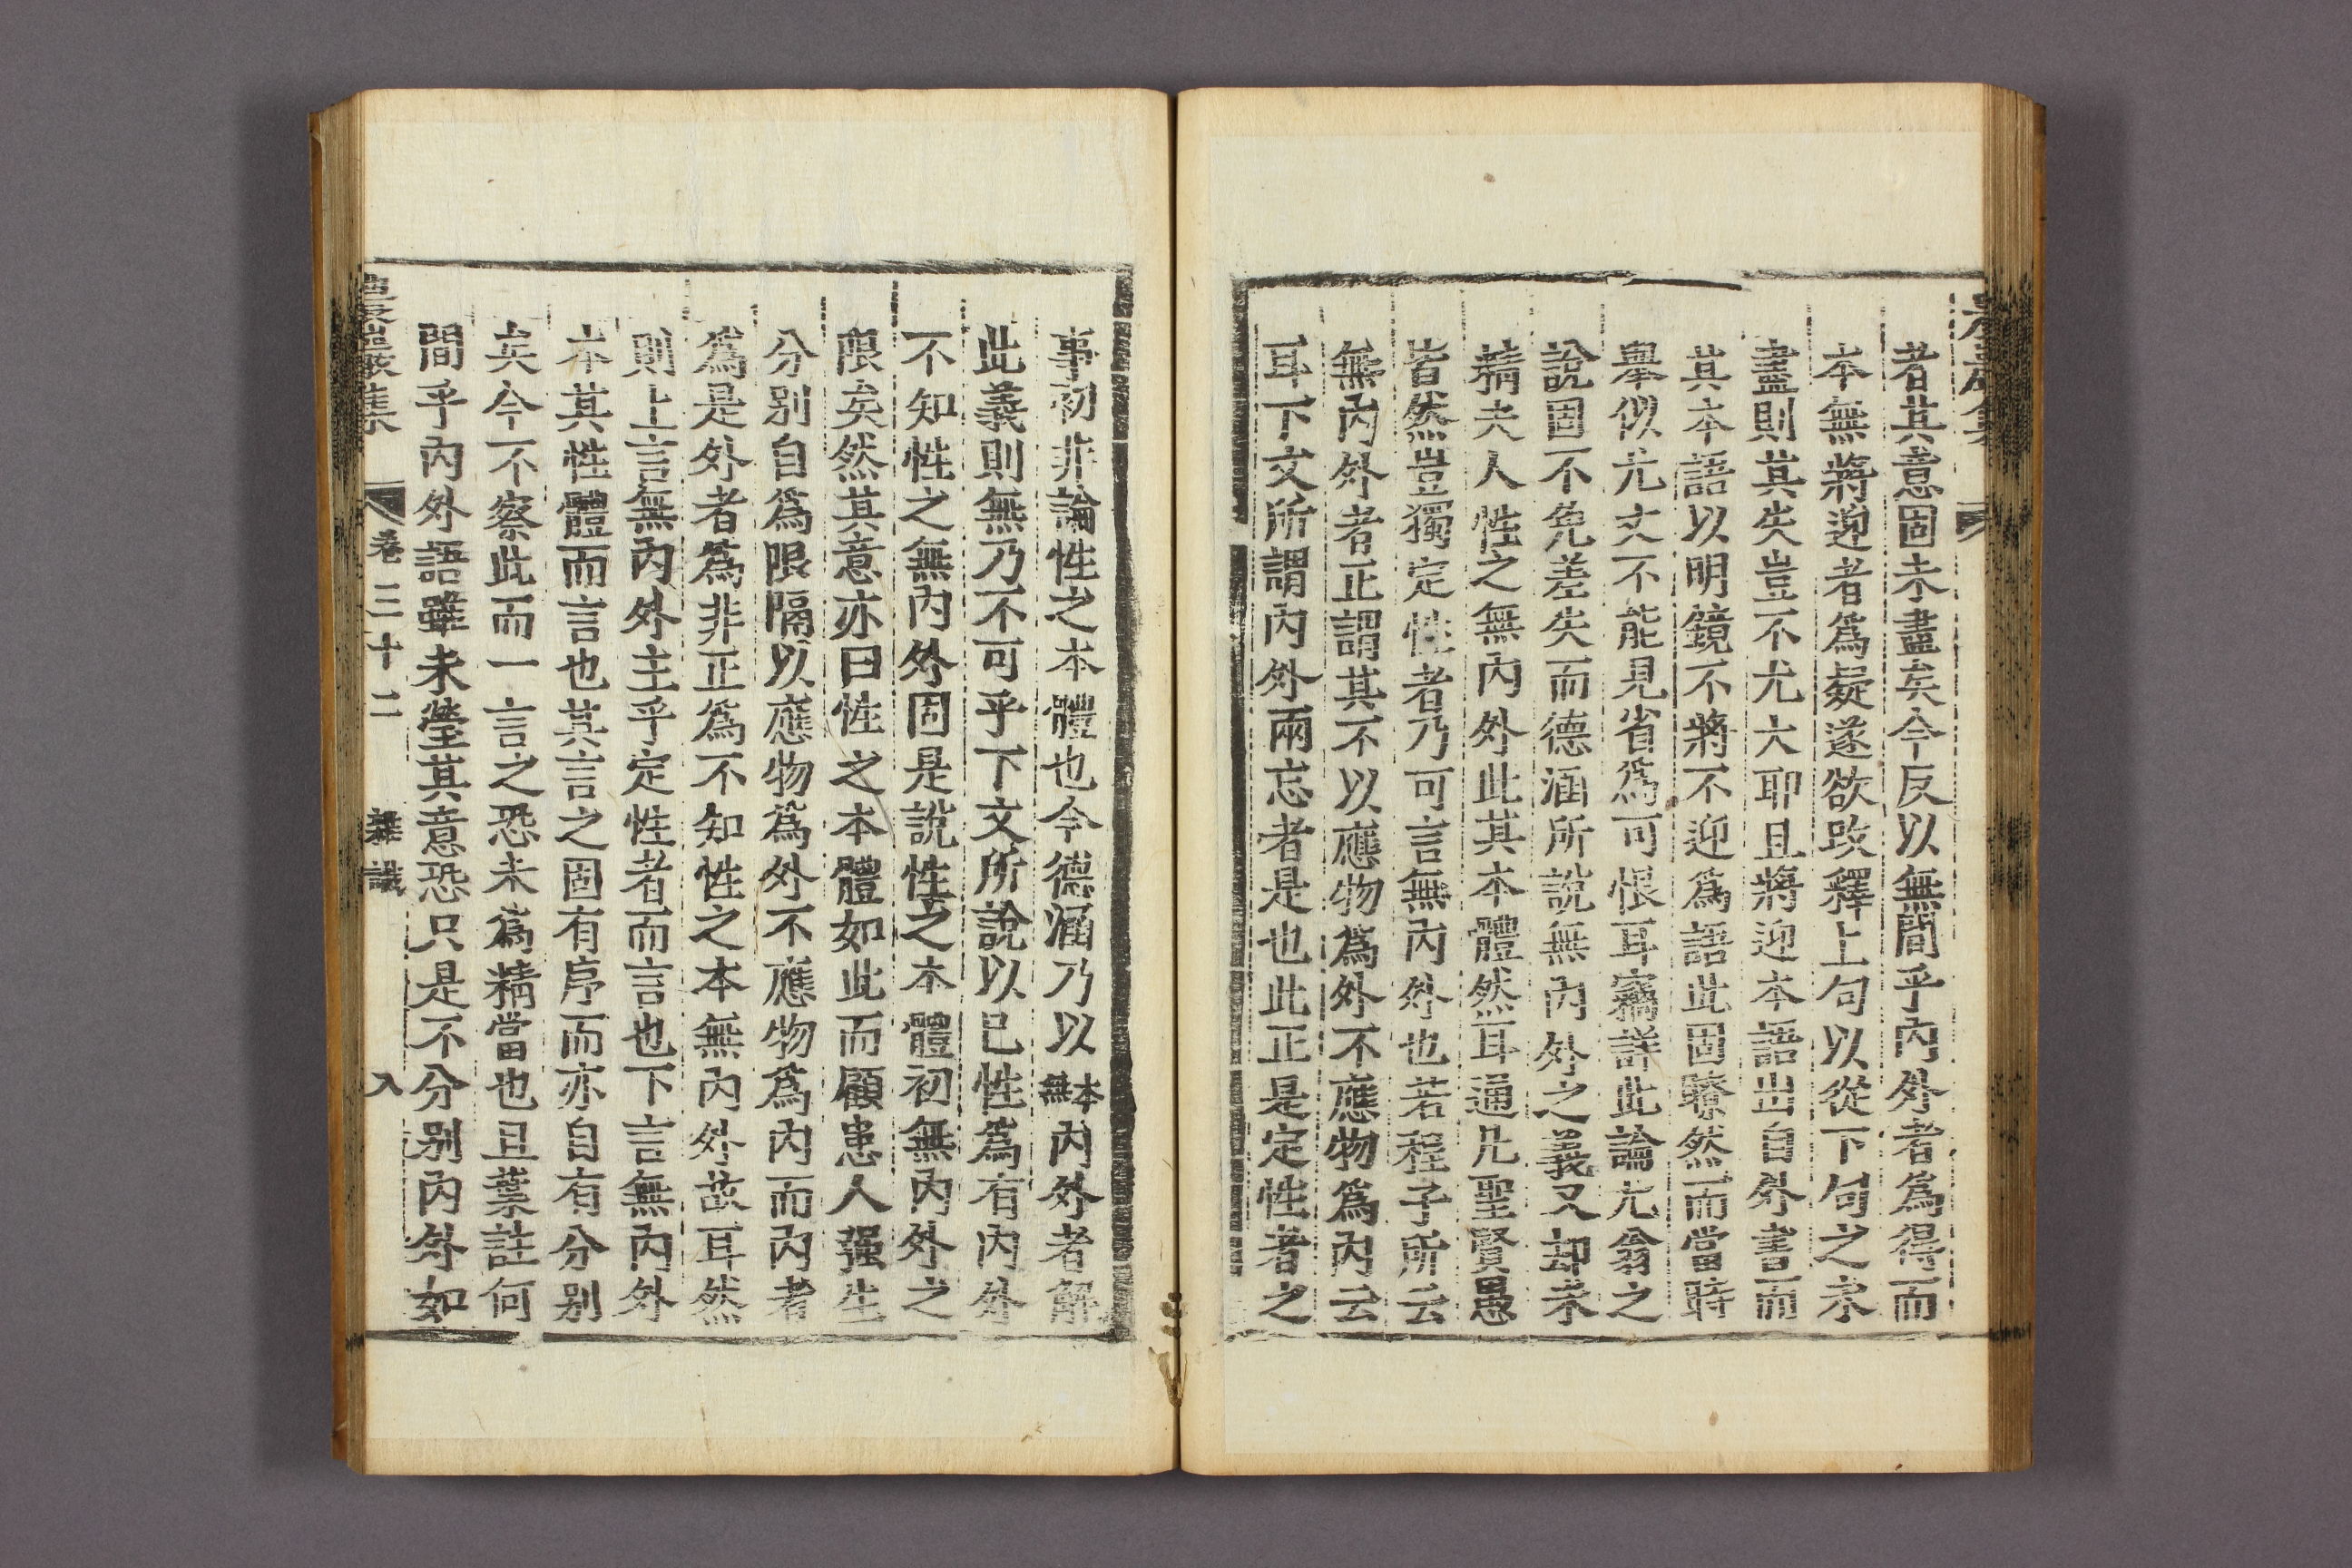 者其意固未盡矣今反以無間乎內外者爲得而
本無將迎者爲疑遂欲改釋上句以從下句之未
盡則其失豈不尤大耶且將迎本語出自外書而
其本語以明鏡不將不迎爲語此固瞭然而當時
擧似尤丈不能見省爲可恨耳竊詳此論尤翁之
說固不免差失而德涵所說無內外之義又却未
精夫人性之無內外此其本體然耳通凡聖賢愚
皆然豈獨定性者乃可言無內外也若程子所云
無內外者正謂其不以應物爲外不應物爲內云
耳下文所謂內外兩忘者是也此正是定性者之
事初非論性之本體也今德涵乃以本無內外者解
此義則無乃不可乎下文所說以己性爲有內外
不知性之無內外固是說性之本體初無內外之
限矣然其意亦曰性之本體如此而顧患人强生
分別自爲限隔以應物爲外不應物爲內而內者
爲是外者爲非正爲不知性之本無內外故耳然
則上言無內外主乎定性者而言也下言無內外
本其性體而言也其言之固有序而亦自有分別
矣今不察此而一言之恐未爲精當也且葉註何
間乎內外語雖未瑩其意恐只是不分別內外如
農巖集 卷三十二 雜識 八